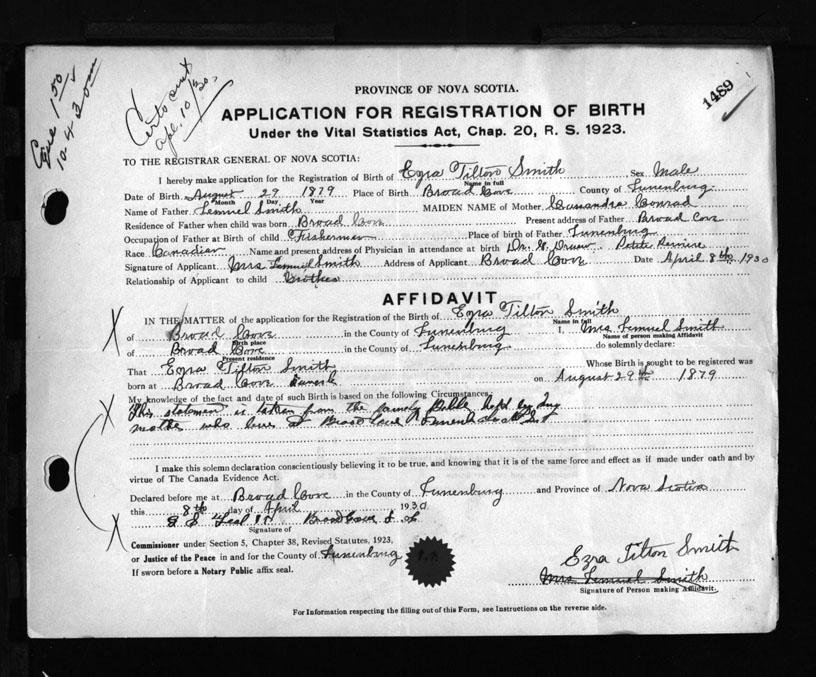 Fee 1.50
10.4.30
Cert. sent
Apl. 10/30.
1489
PROVINCE OF NOVA SCOTIA.
APPLICATION FOR REGISTRATION OF BIRTH
Under the Vital Statistics Act, Chap. 20, R. S. 1923.
TO THE REGISTRAR GENERAL OF NOVA SCOTIA:
I hereby make application for the Registration of Birth of Ezra Tilton Smith Sex Male
Name in full
Date of Birth August 29 1879 Place of Birth Broad Cove County of Lunenburg
Month Day Year
Name of Father Lemuel Smith MAIDEN NAME of Mother Cassandra Conrad
Residence of Father when child was born Broad Cove Present address of Father Broad Cove
Occupation of Father at Birth of child Fisherman Place of birth of Father Lunenburg
Race Canadian Name and present address of Physician in attendance at birth Dr. Petite Reviere
Signature of Applicant Mrs Lemuel Smith Address of Applicant Broad Cove Date April 8th 1930
Relationship of Applicant to child
AFFIDAVIT
IN THE MATTER of the application for the Registration of the Birth of Ezra Tilton Smith
Name in full
of Broad Cove in the County of Lunenburg I, Mrs. Lemuel Smith
Birth place Name of person making Affidavit
of Broad Cove in the County of Lunenburg do solemnly declare:
Present residence
That Ezra Tilton Smith Whose Birth is sought to be registered was
born at Broad Cove on August 29th 1879
My knowledge of the fact and date of such Birth is based on the following Circumstances:
This statement is taken from the family Bible kept by my
mother who lives at Broad Cove
I make this solemn declaration conscientiously believing it to be true, and knowing that it is of the same force and effect as if made under oath and by
virtue of The Canada Evidence Act.
Declared before me at Broad Cove in the County of Lunenburg and Province of Nova Scotia
this 8th day of April 1930
Broad Cove
Signature of
Commissioner under Section 5, Chapter 38, Revised Statutes, 1923,
or Justice of the Peace in and for the County of Lunenburg
If sworn before a Notary Public affix seal.
Ezra Tilton Smith
Mrs Lemuel Smith
Signature of Person making Affidavit.
For Information respecting the filling out of this Form, see Instructions on the reverse side.